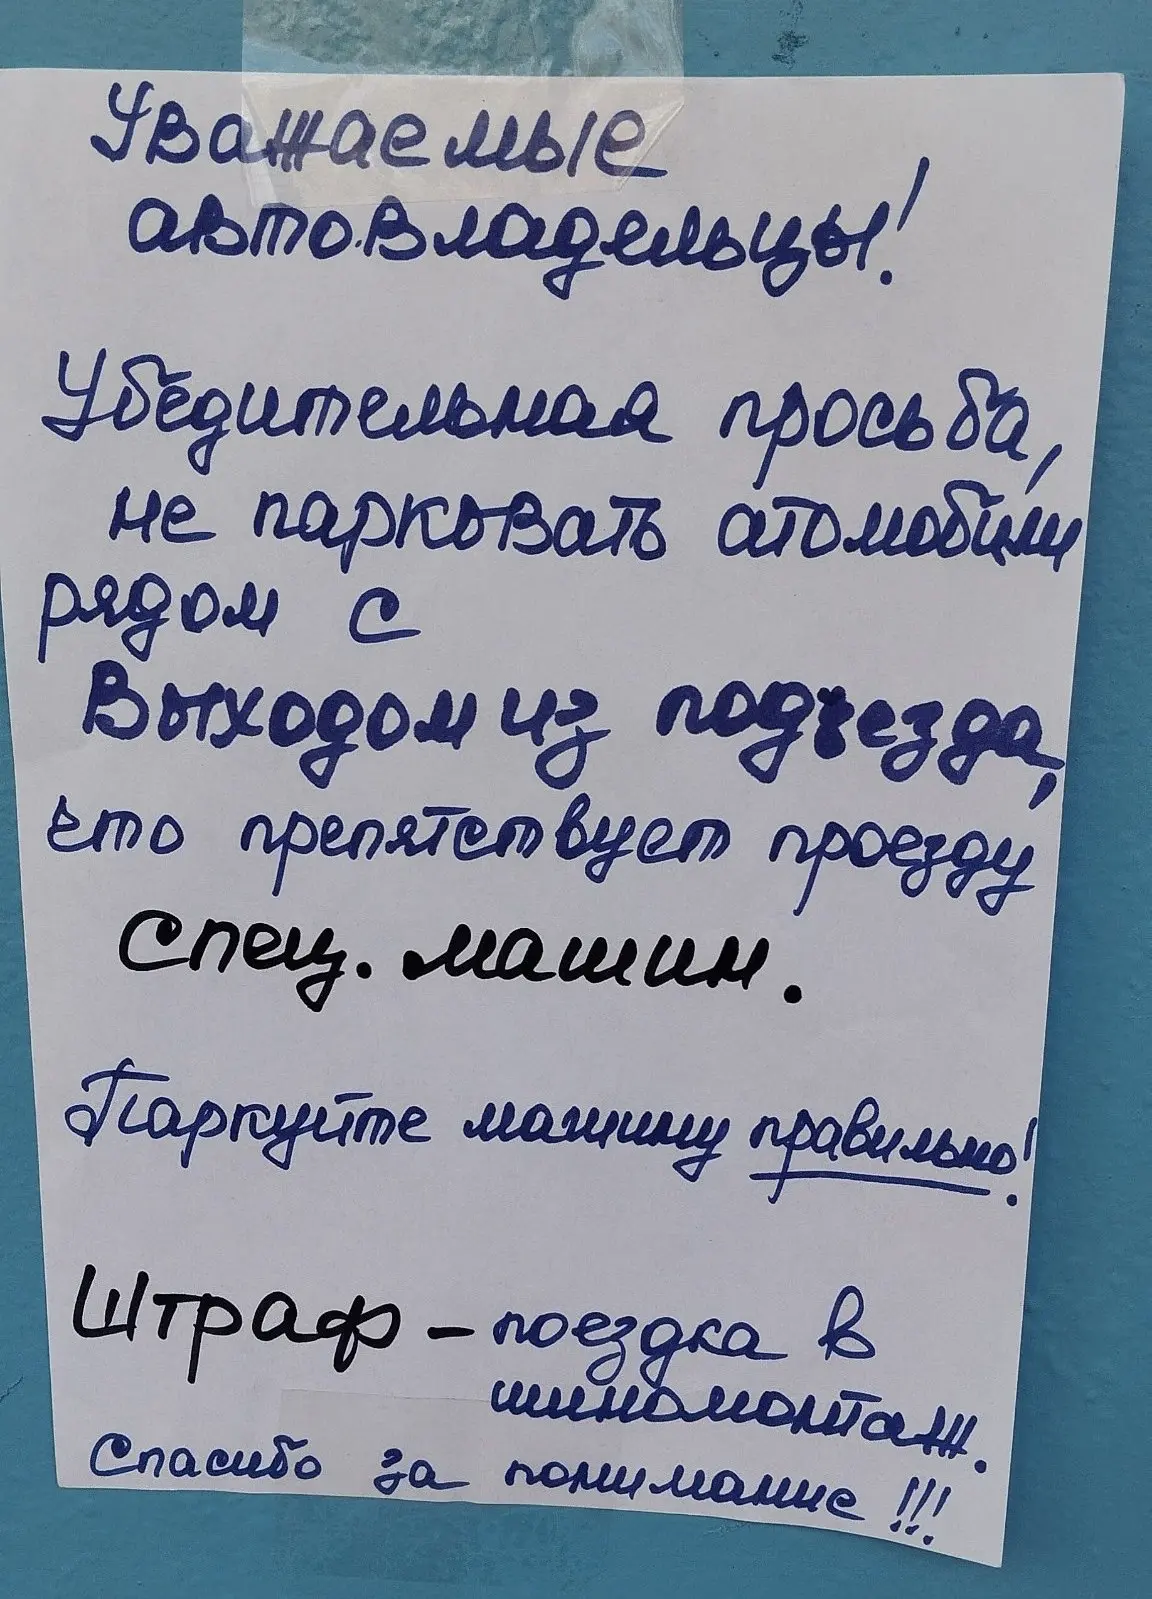 Уважаемые
автовладельцы!
Убедительная просьба,
не парковать атомобили
рядом с
Выходом из подъезда,
что препятствует проезду
спец. машин.
Паркуйте машину правильно!
Штраф – поездка в
шиномонтаж.
Спасибо за понимание!!!